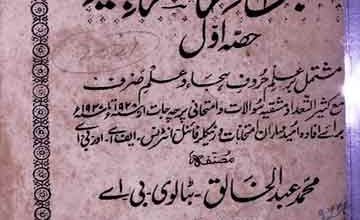 حصہ اول
مشتمل بر علم حروف ہجاء و علم صرف
مع کثیر التعداد مشقیہ سوالات و امتحانی پرچہ جات از ۱۹۲۰ء تا ۱۹۳۰ء
برائے افادہ امیدواران امتحانات ورنیکلر فائنل انٹرنس۔ ایف۔اے۔ اور بی اے
مصنفہ
محمد عبد الخالق۔ بٹالوی۔ بی۔ اے